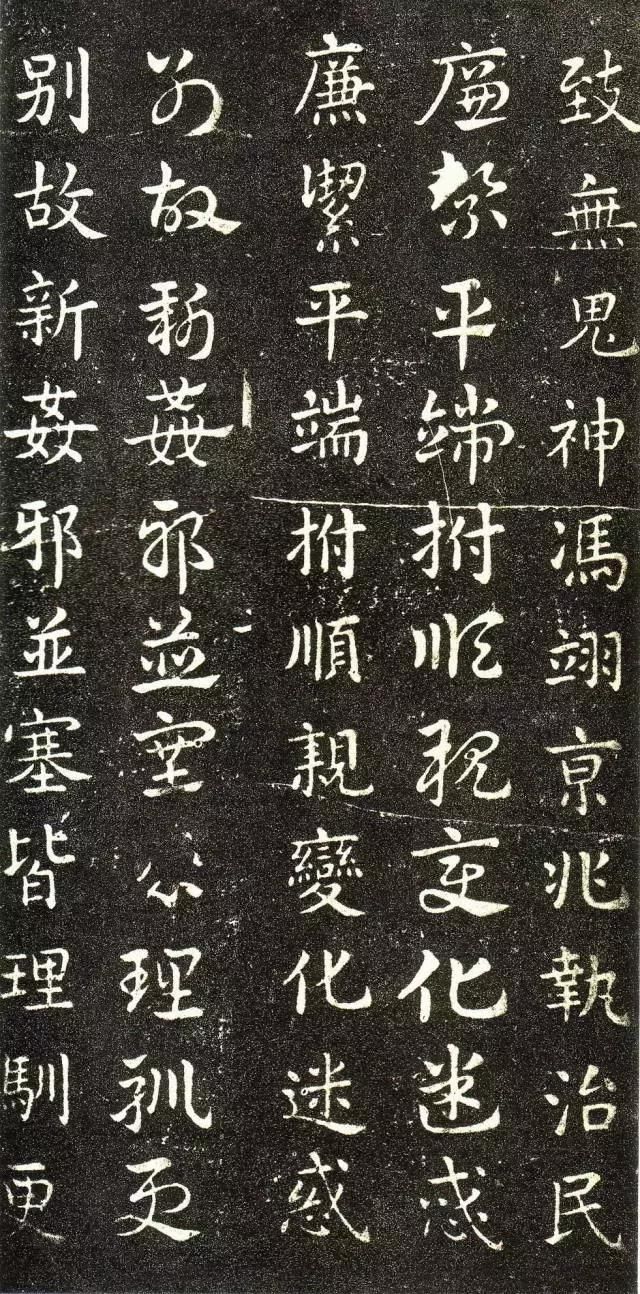 致無鬼神馮翊京兆執治民
廉絜平端拊順親變化迷惑
廉絜平端拊順親變化迷惑
別故新姦邪並塞皆理馴更
別故新姦邪並塞皆理馴更